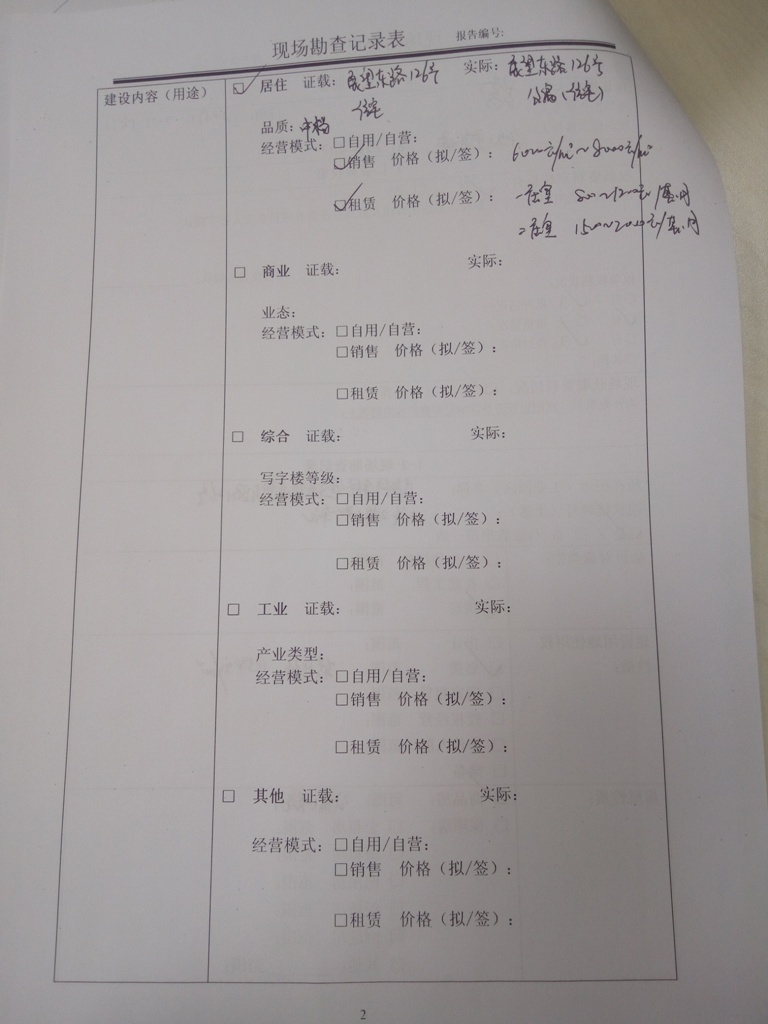 现场勘查记录表 报告编号:
建设内容（用途） ☑ 居住 证载: 展望东路126号 实际: 展望东路126号
住宅 公寓(住宅)
品质: 中档
经营模式: □自用/自营:
☑销售 价格（拟/签）: 6000元/㎡~8000元/㎡
☑租赁 价格（拟/签）: 一居室 800~1200元/套.月
二居室 1500~2000元/套.月
□ 商业 证载: 实际:
业态:
经营模式: □自用/自营:
□销售 价格（拟/签）:
□租赁 价格（拟/签）:
□ 综合 证载: 实际:
写字楼等级:
经营模式: □自用/自营:
□销售 价格（拟/签）:
□租赁 价格（拟/签）:
□ 工业 证载: 实际:
产业类型:
经营模式: □自用/自营:
□销售 价格（拟/签）:
□租赁 价格（拟/签）:
□ 其他 证载: 实际:
经营模式: □自用/自营:
□销售 价格（拟/签）:
□租赁 价格（拟/签）:
2